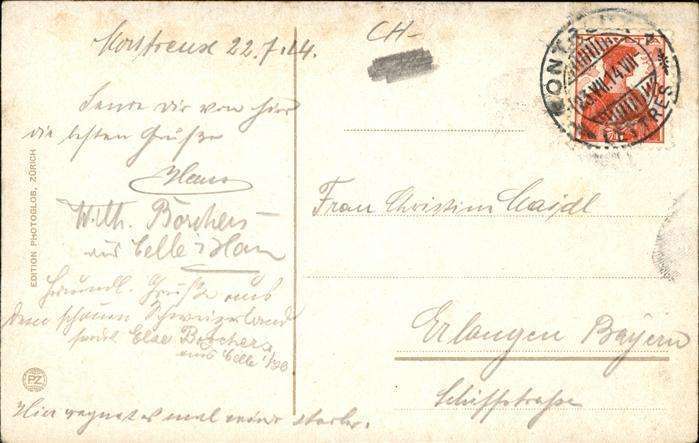 Montreux 22.7.14.
Sende dir von hier
die besten Grüße
Hans
Wilh. Borchers
aus Celle i/Han
Freundl. Grüße aus
dem schönen Schweizerland
sendet Else Borchers
aus Celle
Hier regnet es mal wieder starke.
EDITION PHOTOGLOB, ZÜRICH
PZ
CH-
MONTREUX
23.VII.14.VII
LETTRES
Frau Christine Maidl
Erlangen Bayern
Schiffstraße